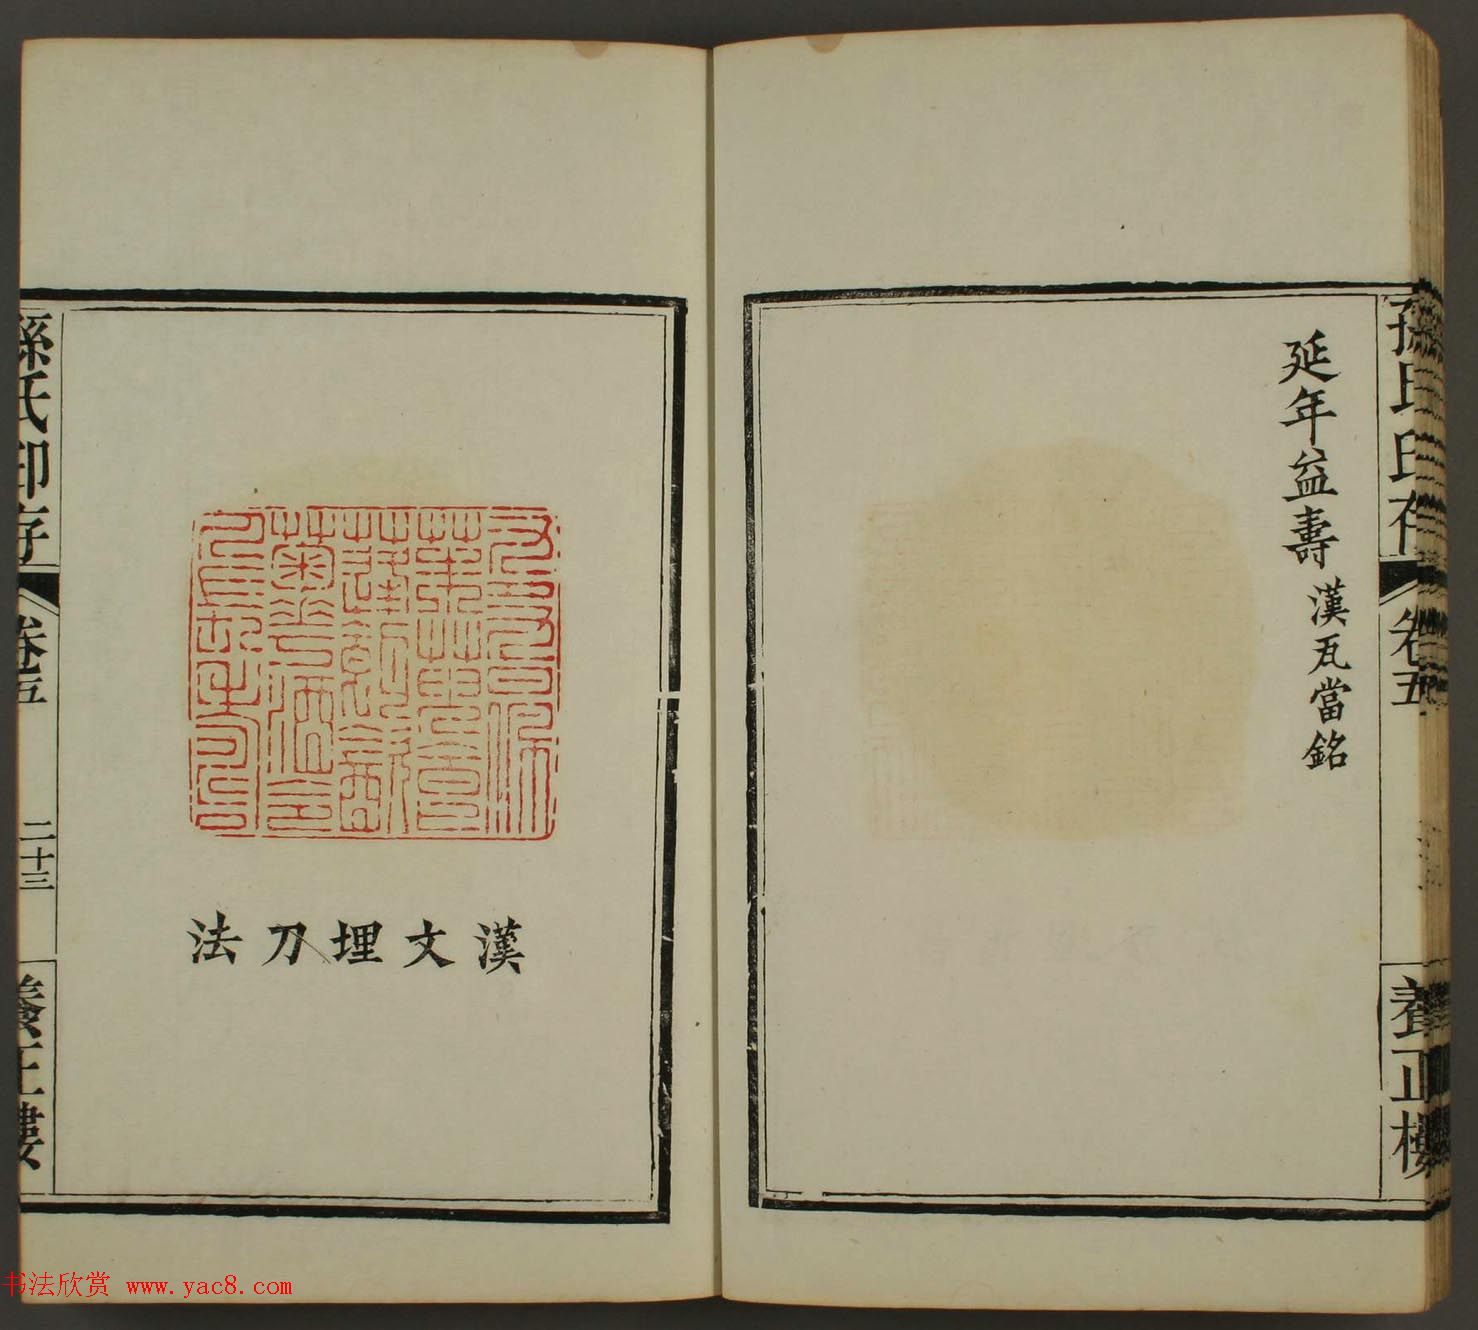 孫氏印存
卷五
養正樓
延年益壽 漢瓦當銘
漢文埋刀法
孫氏印存
卷五
二十三
養正樓
书法欣赏 www.yac8.com